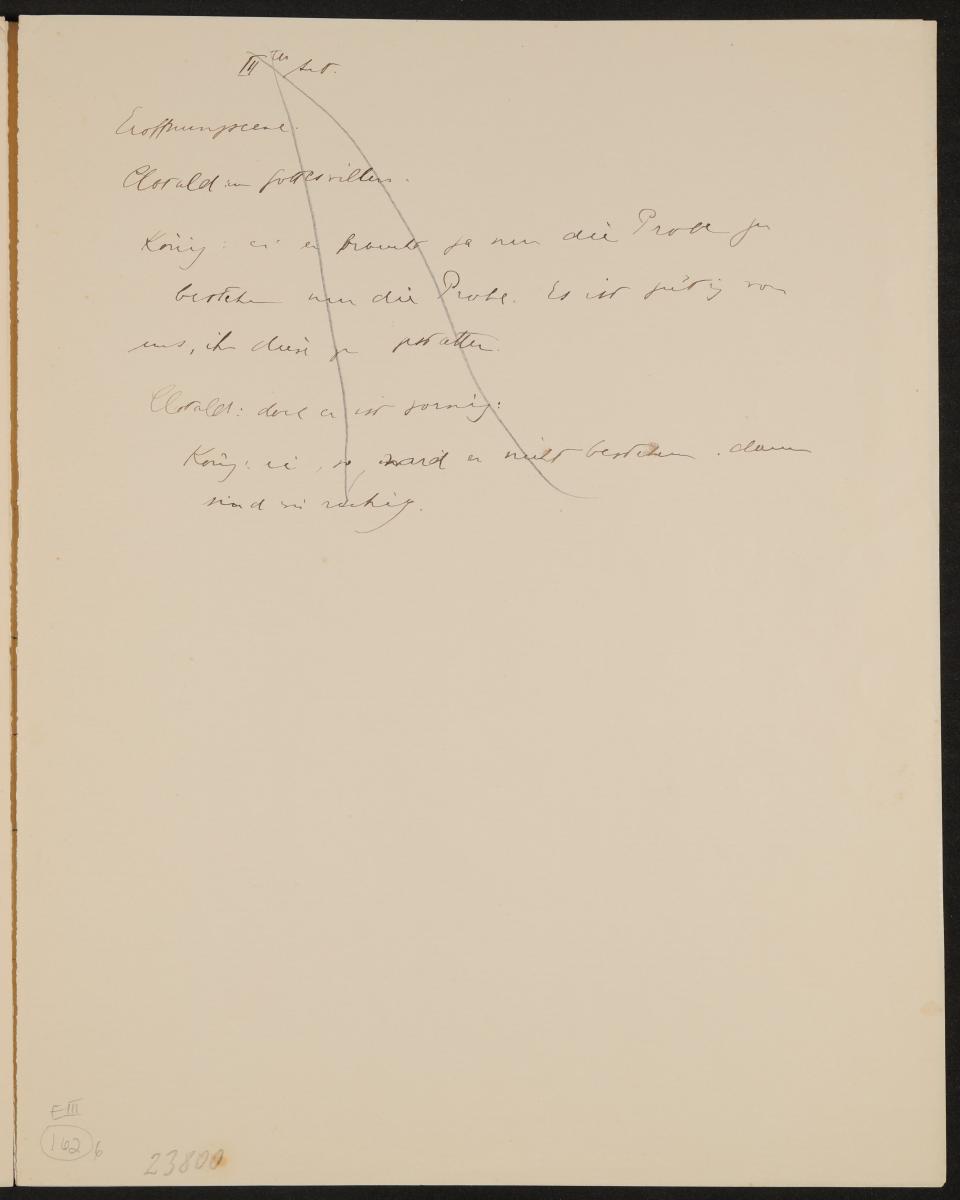 IIIter Act.
Eroffnungscene.
Clotald: um Gotteswillen.
König: ei er braucht ja nur die Probe zu
bestehen nur die Probe. Es ist gütig von
uns, ihm diese zu gestatten.
Clotald: doch er ist zornig:
König: ei, so, ward er nicht bestehen. dann
sind wir ruhig.
E III
162 6
23800